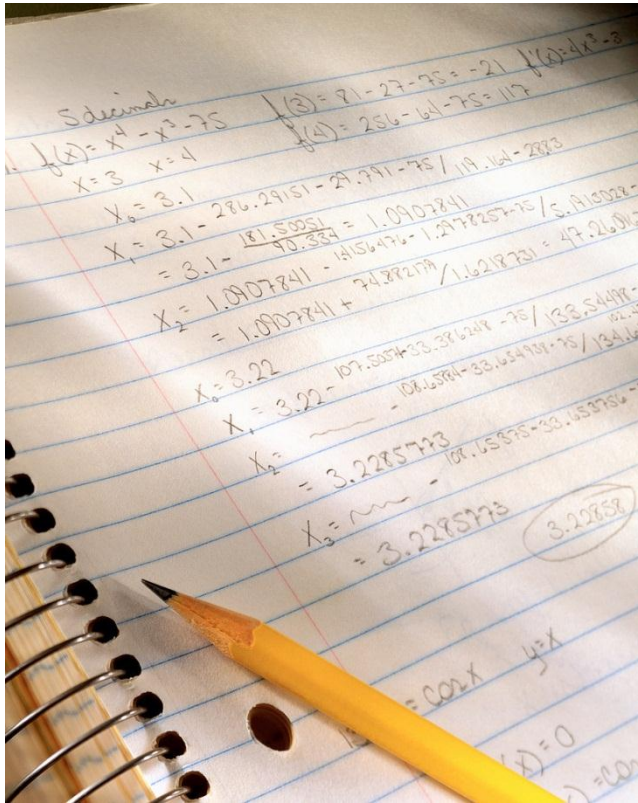 5 decimals
f(3) = 81 - 27 - 75 = -21 f'(x) = 4x³ - 3
1. f(x) = x⁴ - x³ - 75
f(4) = 256 - 64 - 75 = 117
x = 3 x = 4
X₀ = 3.1
X₁ = 3.1 - 286.29151 - 29.791 - 75 / 119.164 - 28.83
= 3.1 - 181.50051 / 90.334 = 1.0907841
X₂ = 1.0907841 - 1.4156476 - 1.2978257 - 75 /
= 1.0907841 + 74.882179 / 1.6218731 = 47.260
X₀ = 3.22
X₁ = 3.22 - 107.5037 - 33.386248 - 75 / 133.54498
X₂ = - 108.6584 - 33.654938 - 75 / 134.6
= 3.2285773
X₃ = - 108.65375 - 33.653756 -
= 3.2285773
3.22858
= cos x y = x
(x) = 0
) = cos